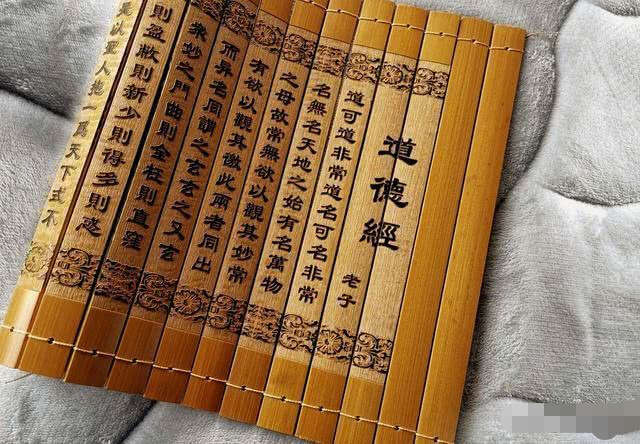 道德經
老子
道可道非常道名可名非常
名無名天地之始有名萬物
之母故常無欲以觀其妙常
有欲以觀其徼此兩者同出
而異名同謂之玄玄之又玄
衆妙之門曲則全枉則直窪
則盈敝則新少則得多則惑
是以聖人抱一爲天下式不